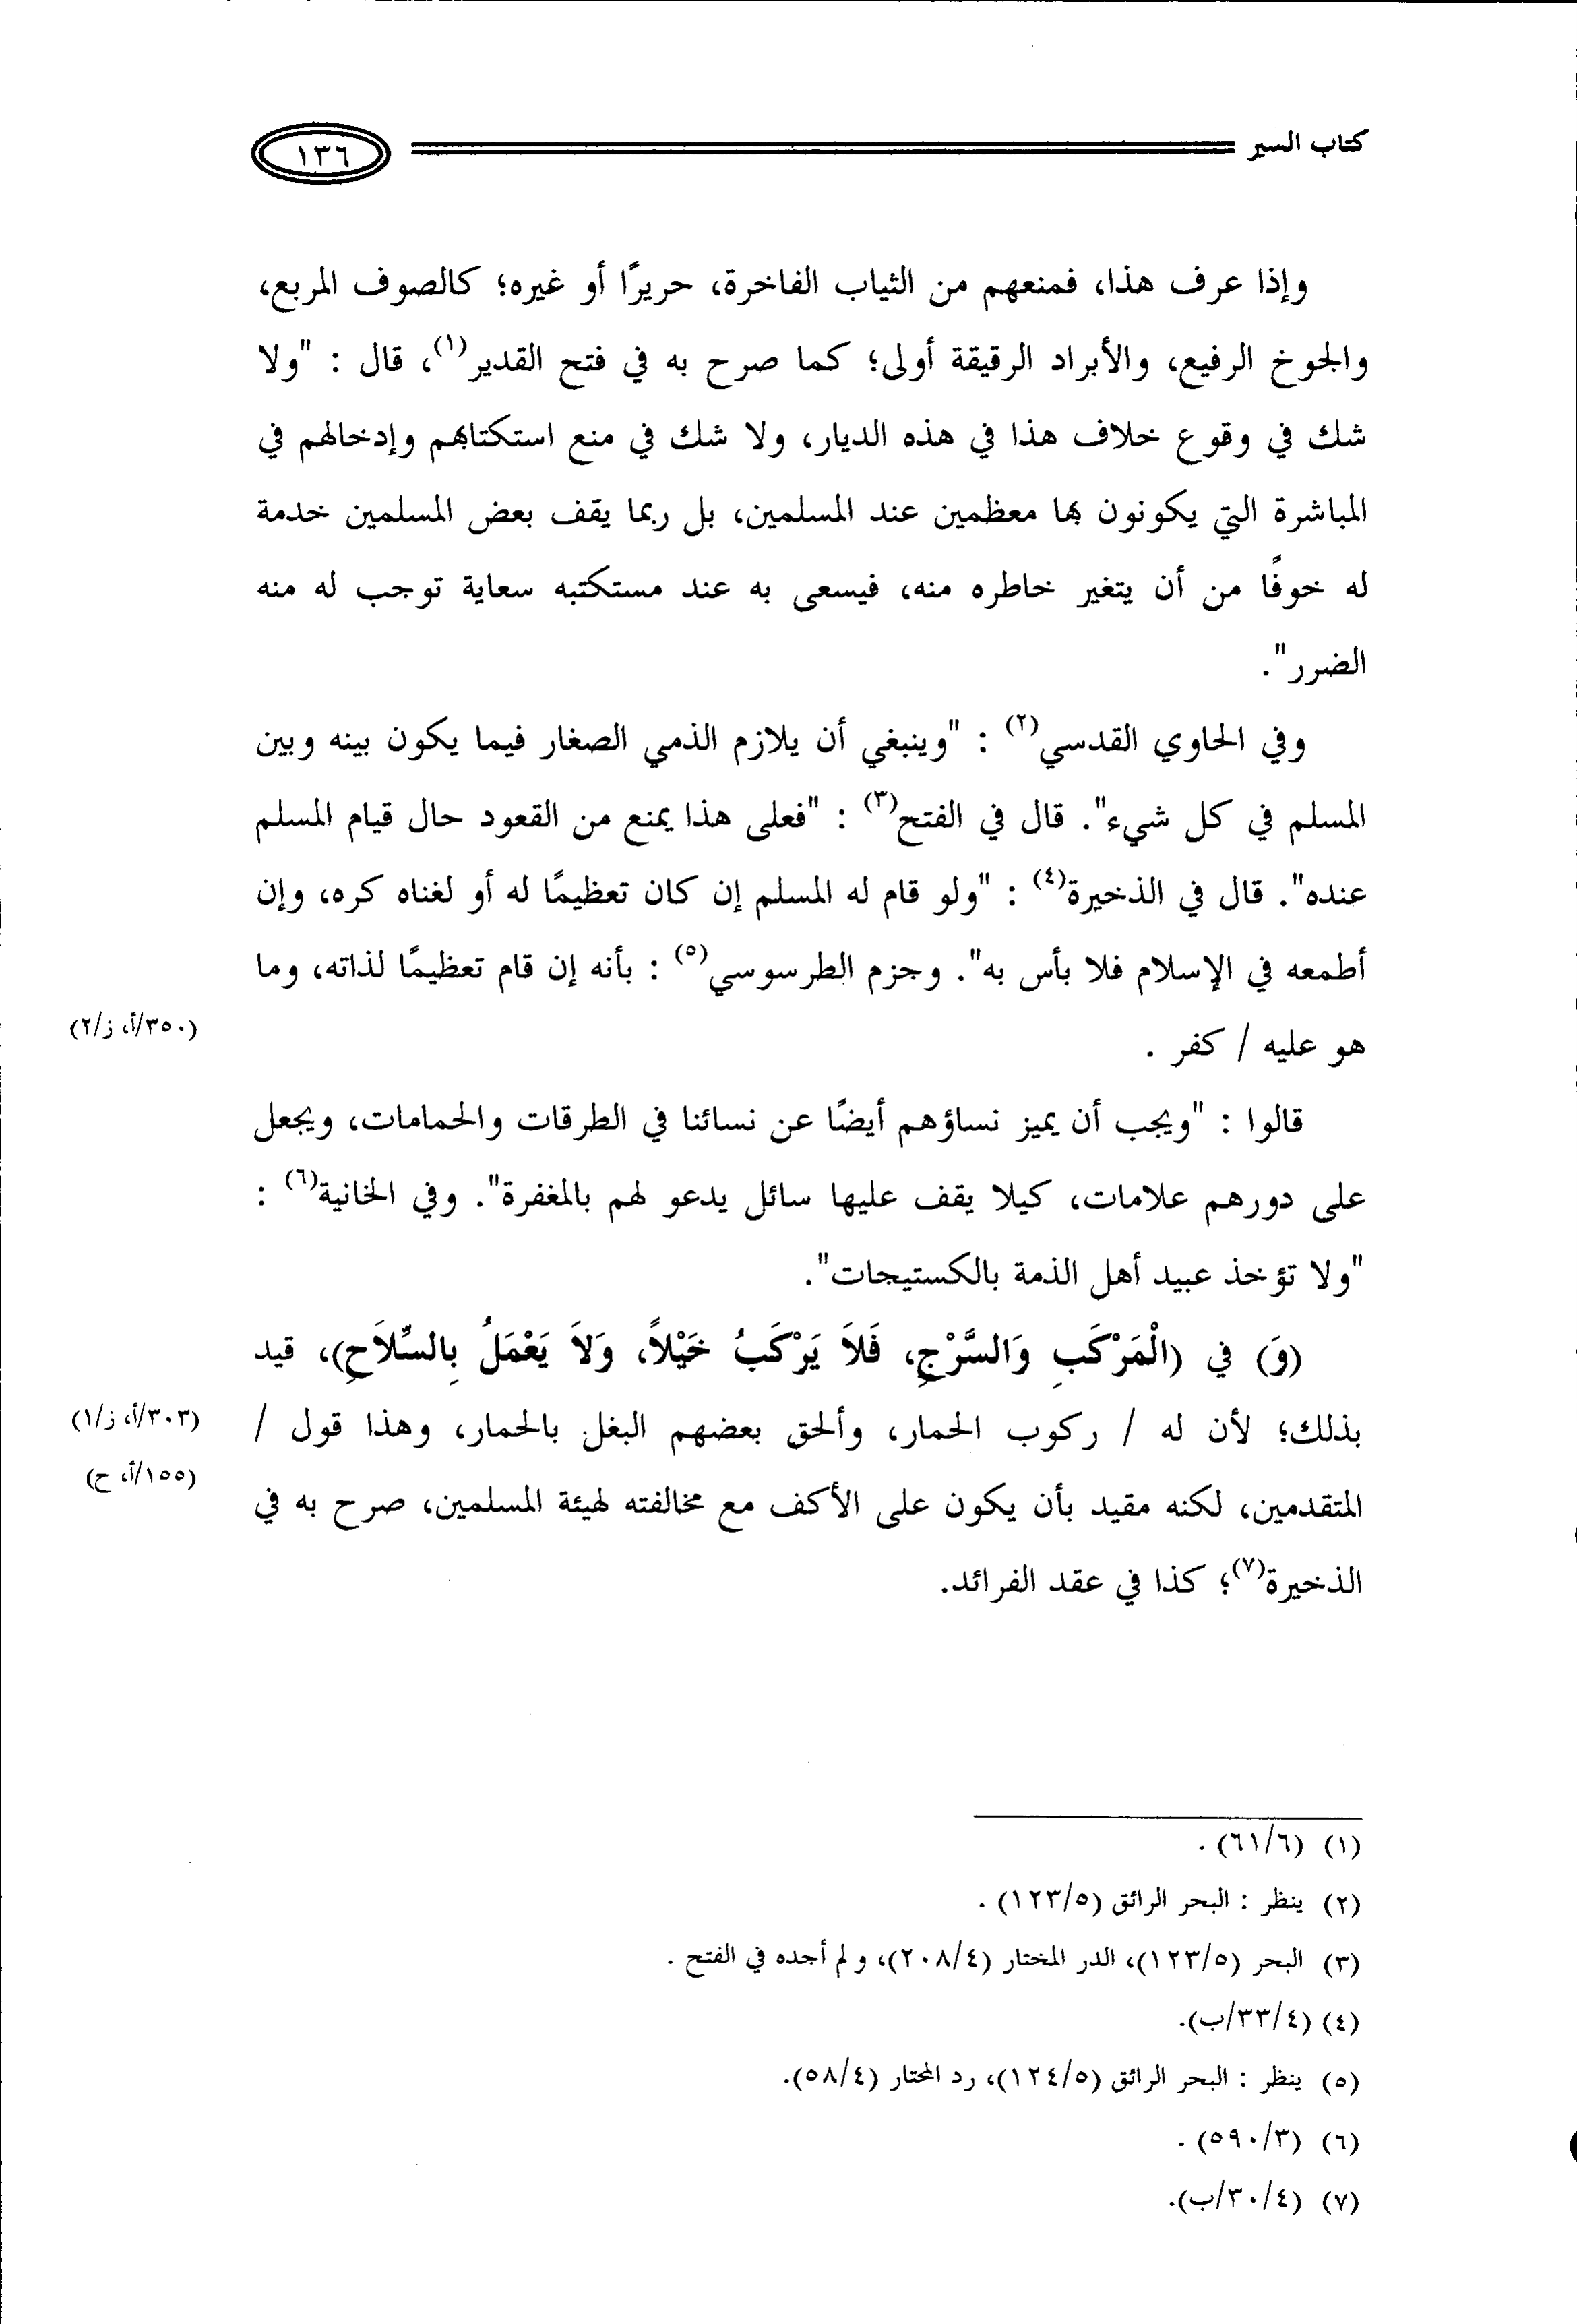 كتاب السير
١٣٦
وإذا عرف هذا، فمنعهم من الثياب الفاخرة، حريرًا أو غيره؛ كالصوف المربع،
والجوخ الرفيع، والأبراد الرقيقة أولى؛ كما صرح به في فتح القدير(١)، قال : "ولا
شك في وقوع خلاف هذا في هذه الديار، ولا شك في منع استكتابهم وإدخالهم في
المباشرة التي يكونون بها معظمين عند المسلمين، بل ربما يقف بعض المسلمين خدمة
له خوفًا من أن يتغير خاطره منه، فيسعى به عند مستكتبه سعاية توجب له منه
الضرر".
وفي الحاوي القدسي(٢) : "وينبغي أن يلازم الذمي الصغار فيما يكون بينه وبين
المسلم في كل شيء". قال في الفتح(٣) : "فعلى هذا يمنع من القعود حال قيام المسلم
عنده". قال في الذخيرة(٤) : "ولو قام له المسلم إن كان تعظيمًا له أو لغناه كره، وإن
أطمعه في الإسلام فلا بأس به". وجزم الطرسوسي(٥) : بأنه إن قام تعظيمًا لذاته، وما
هو عليه / كفر .
(٣٥٠/أ، ز/٢)
قالوا : "ويجب أن يميز نساؤهم أيضًا عن نسائنا في الطرقات والحمامات، ويجعل
على دورهم علامات، كيلا يقف عليها سائل يدعو لهم بالمغفرة". وفي الخانية(٦) :
"ولا تؤخذ عبيد أهل الذمة بالكستيجات".
(وَ) في (الْمَرْكَبِ وَالسَّرْجِ، فَلاَ يَرْكَبُ خَيْلاً، وَلاَ يَعْمَلُ بِالسِّلاَحِ)، قيد
بذلك؛ لأن له / ركوب الحمار، وألحق بعضهم البغل بالحمار، وهذا قول /
(٣٠٣/أ، ز/١)
(١٥٥/أ، ح)
المتقدمين، لكنه مقيد بأن يكون على الأكف مع مخالفته لهيئة المسلمين، صرح به في
الذخيرة(٧)؛ كذا في عقد الفرائد.
(١) (٦١/٦) .
(٢) ينظر : البحر الرائق (١٢٣/٥) .
(٣) البحر (١٢٣/٥)، الدر المختار (٢٠٨/٤)، ولم أجده في الفتح .
(٤) (٣٣/٤/ب).
(٥) ينظر : البحر الرائق (١٢٤/٥)، رد المحتار (٥٨/٤).
(٦) (٥٩٠/٣) .
(٧) (٣٠/٤/ب).